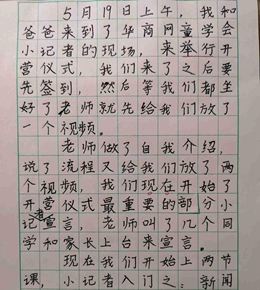 5月19日上午，我和
爸爸来到了华商网童学会
小记者的现场，来举行开
营仪式，我们来了之后要
先签到，然后等我们都坐
好了老师就先给我们放了
一个视频。
老师做了自我介绍，
说了流程又给我们放了两
个视频，我们现在开始了
开营仪式最重要的部分小
记者宣言，老师叫了几个同
学和家长上台来宣言。
现在我们开始上两节
课，小记者入门之：新闻